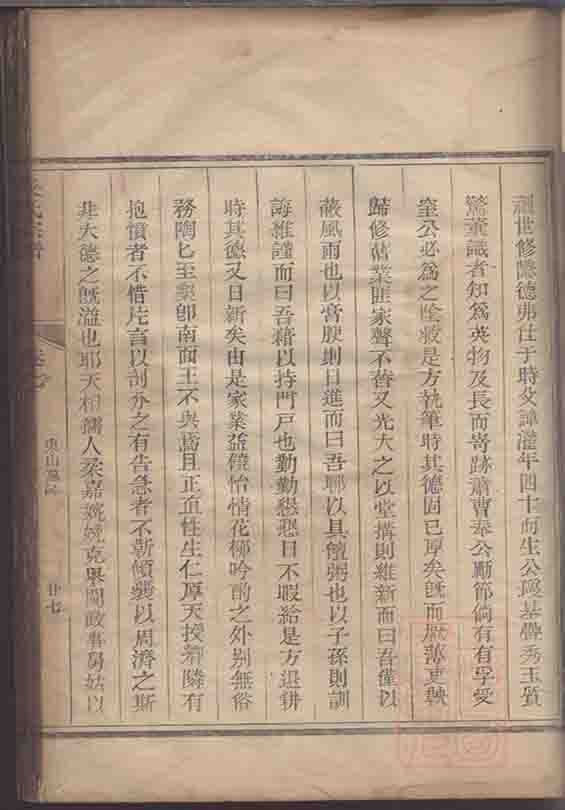 祖世修隱德弗仕于時父諱瀅年四十而生公凝基疊秀玉質
驚葷識者知為英物及長而寄跡蕭曹奉公勵節倘有有孚受
窒公必為之陰救是方執筆時其德固已厚矣既而厭薄吏鞅
歸修舊業匪家聲不替又光大之以堂搆則維新而曰吾僅以
蔽風雨也以膏腴則日進而曰吾聊以具饘粥也以子孫則訓
誨維謹而曰吾藉以持門戶也勤勤懇懇日不暇給是方退耕
時其德又日新矣由是家業益饒怡情花柳吟酌之外别無俗
務陶匕至樂即南面王不與焉且正直性生仁厚天授鄰有
抱憤者不惜片言以剖分之有告急者不靳傾囊以周濟之斯
非大德之既溢也耶天相孺人柔嘉婉娩克舉閫政事舅姑以
東山
廿七